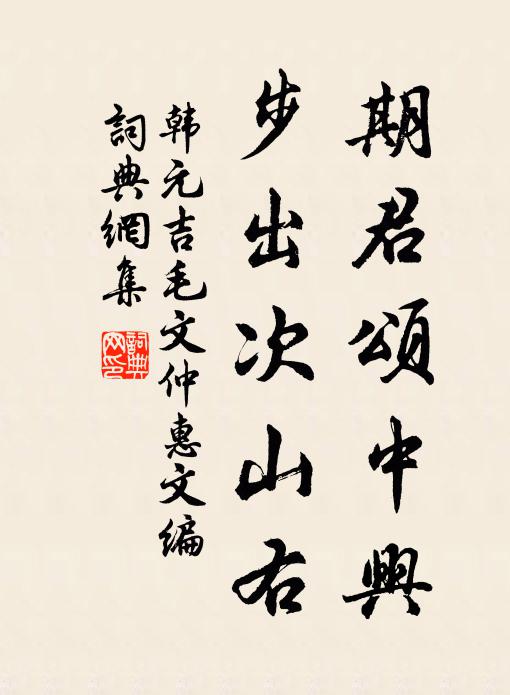 期君頌中興
步出次山右
韩元吉毛文仲惠文编
詞典網集
詞典网印